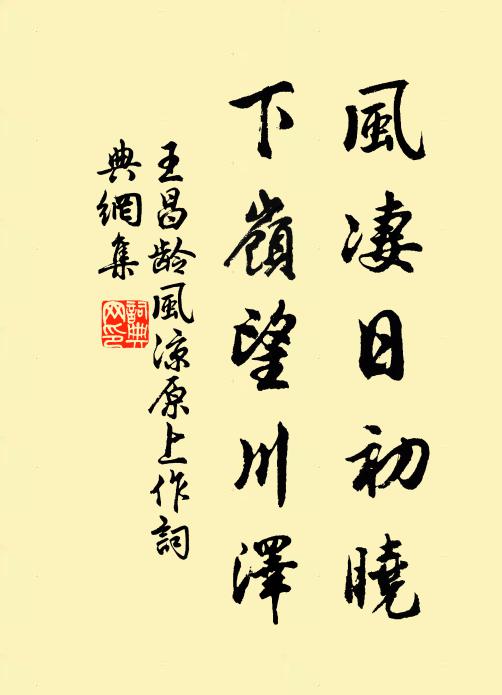 風凄日初曉
下嶺望川澤
王昌龄風凉原上作詞
典網集
詞典
网印